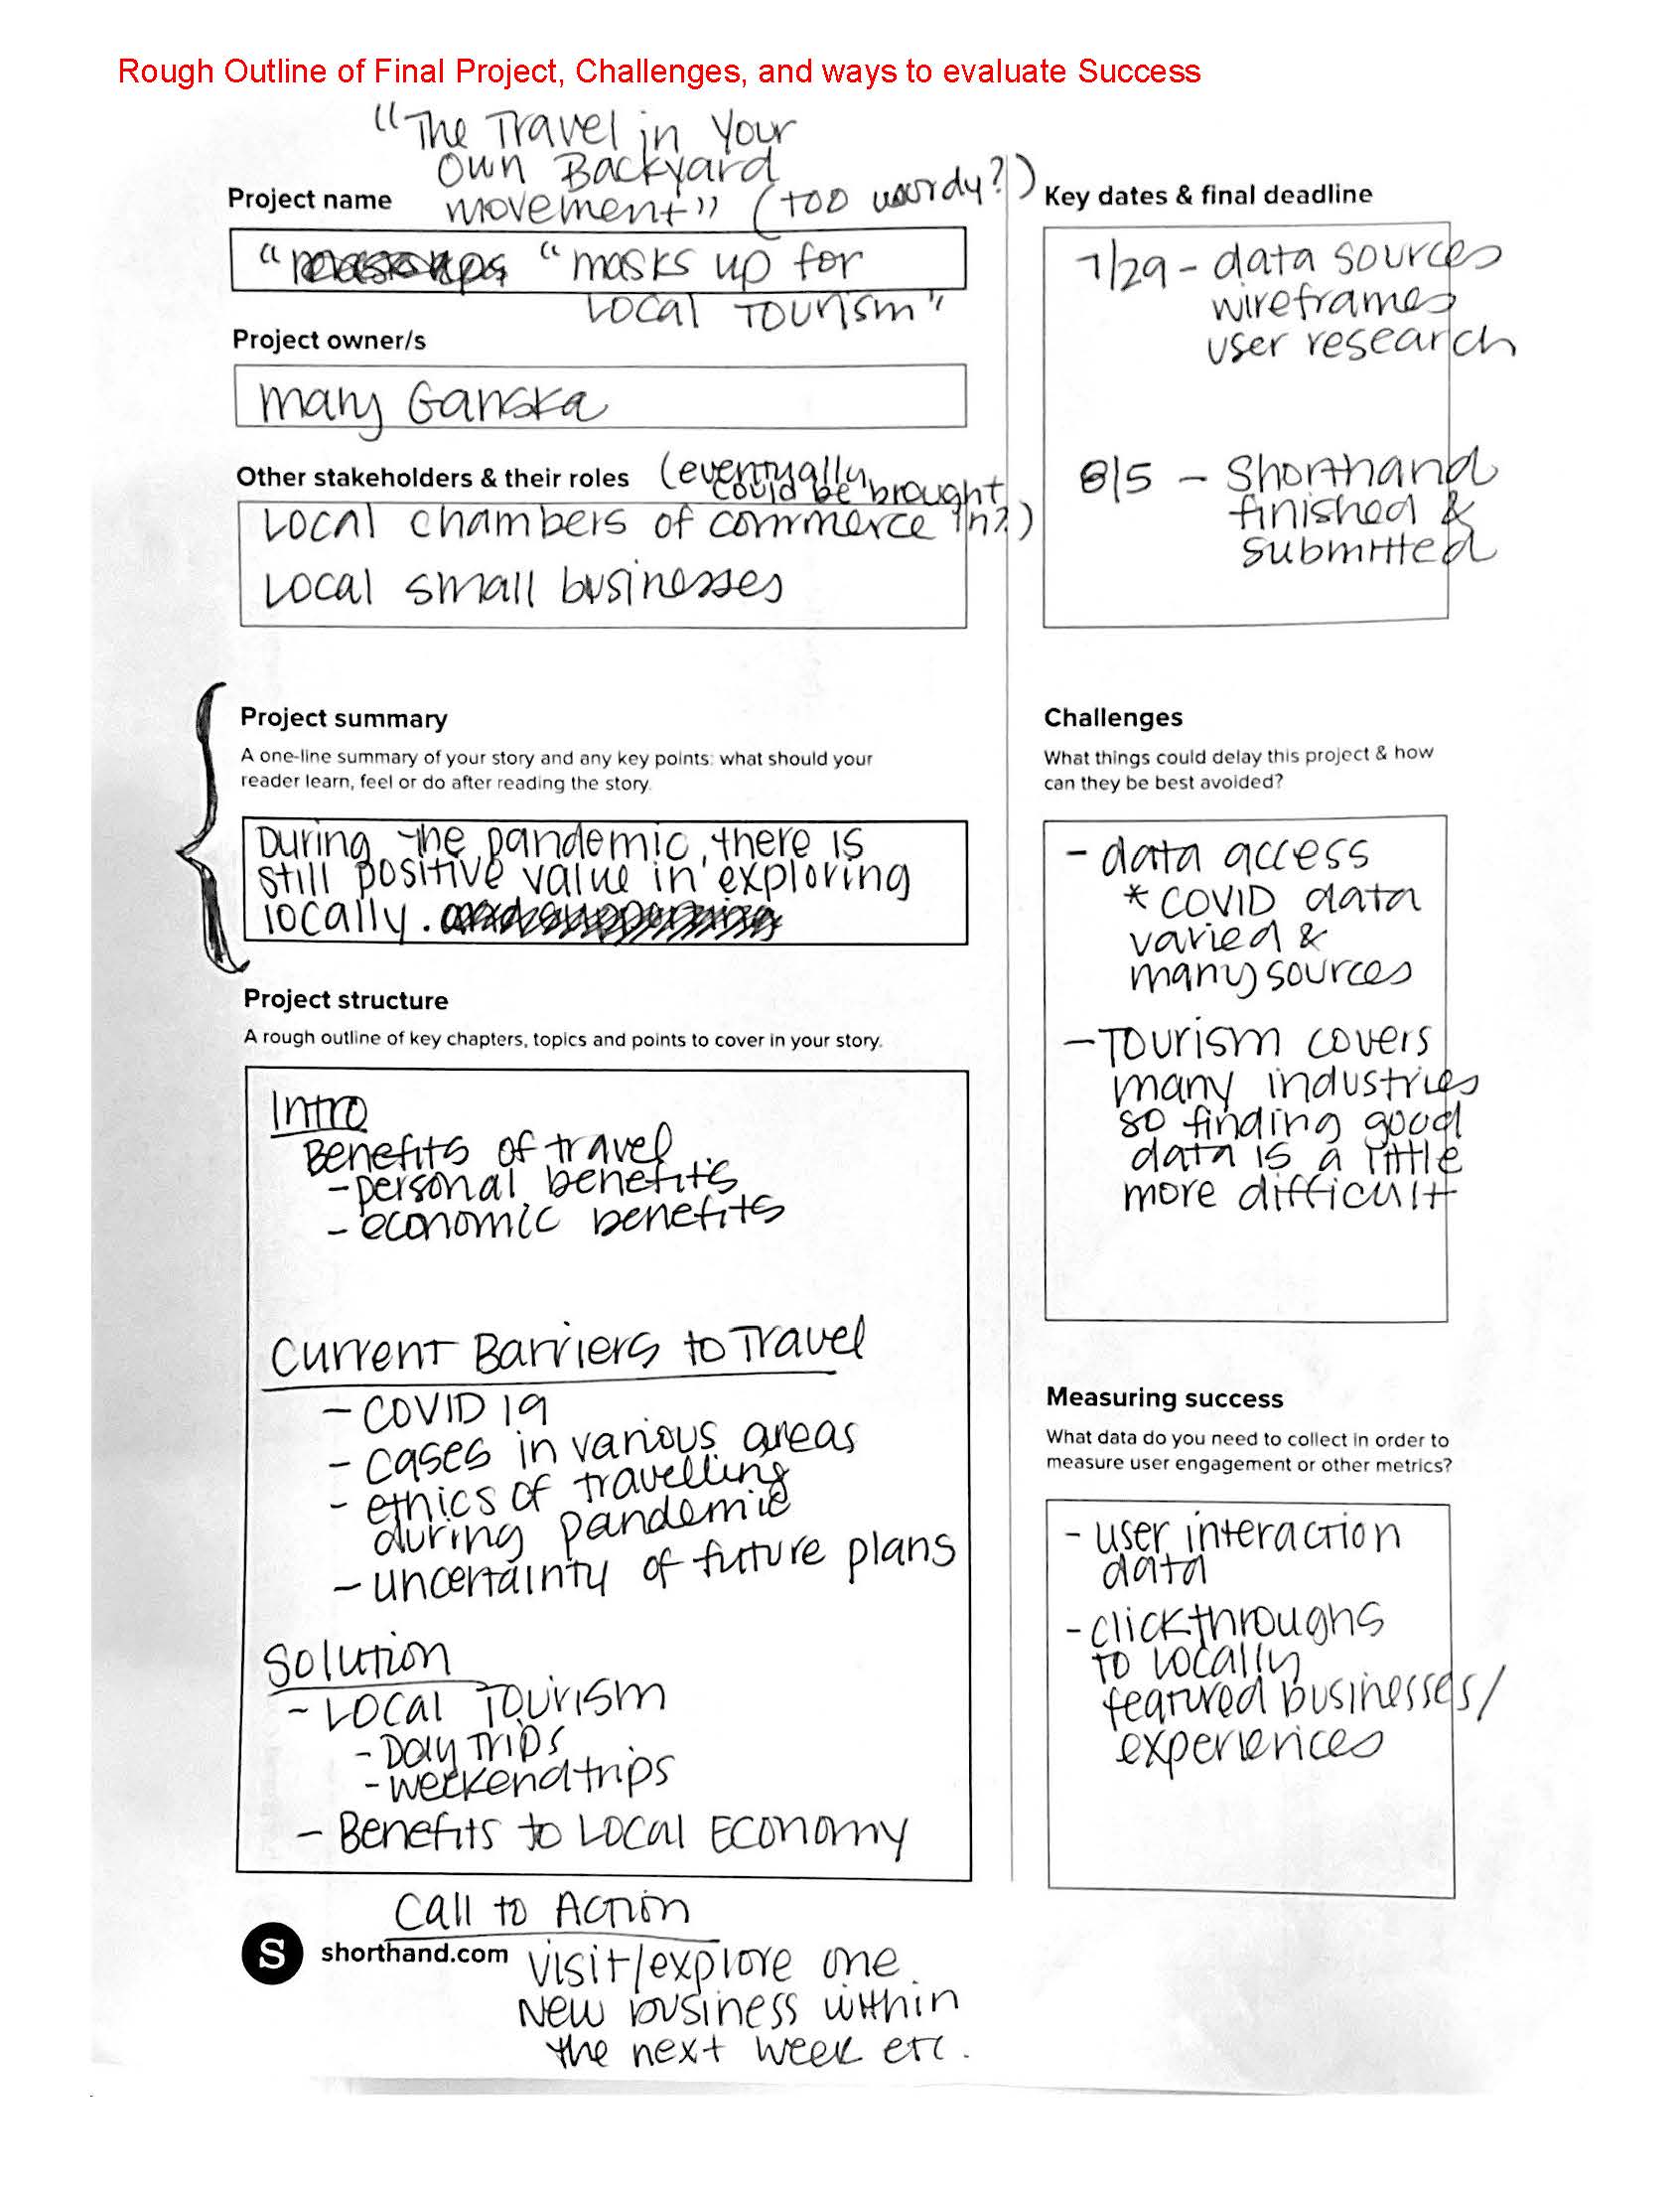 Rough Outline of Final Project, Challenges, and ways to evaluate Success
"The Travel in Your
Own Backyard
movement" (too wordy?)
Project name
" "masks up for
Local Tourism"
Project owner/s
Mary Ganska
Other stakeholders & their roles (eventually
could be brought
Local chambers of commerce in?)
Local small businesses
Project summary
A one-line summary of your story and any key points: what should your
reader learn, feel or do after reading the story.
During the pandemic, there is
still positive value in exploring
locally.
Project structure
A rough outline of key chapters, topics and points to cover in your story.
Intro
Benefits of travel
- personal benefits
- economic benefits
Current Barriers to Travel
- COVID 19
- cases in various areas
- ethics of travelling
during pandemic
- uncertainty of future plans
Solution
- Local Tourism
- Day Trips
- weekend trips
- Benefits to Local Economy
Call to Action
S shorthand.com
visit/explore one
New business within
the next week etc.
Key dates & final deadline
7/29 - data sources
wireframes
user research
8/5 - Shorthand
finished &
submitted
Challenges
What things could delay this project & how
can they be best avoided?
- data access
* COVID data
varied &
many sources
- Tourism covers
many industries
so finding good
data is a little
more difficult
Measuring success
What data do you need to collect in order to
measure user engagement or other metrics?
- user interaction
data
- clickthroughs
to locally
featured businesses/
experiences